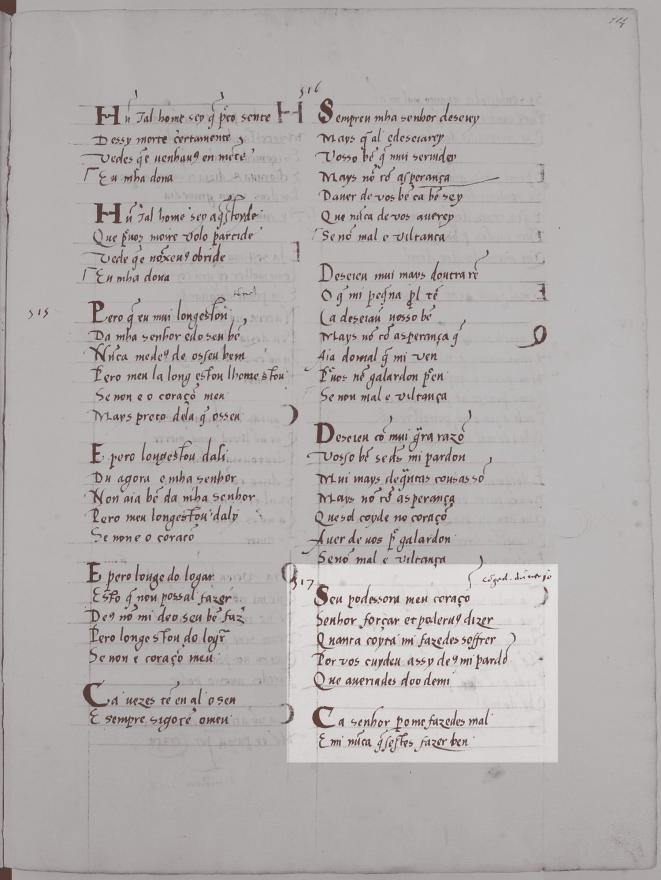 114
Hũ Tal home sey q̃ p̃to sente
Dessy morte c̃ertamente
Vedes q̃e venhaug en mẽte
Eu mha dona
Hũ Tal home sey aq̃stordo
Que p̃uos moire volo partide
Vede q̃ nõxeug obride
Eu mha dona
515
Pero q̃ eu mui longestou
Da mha senhor edo seu bẽ
Nũca medeg de osseu bem
Pero meu la long estou lhomestou
Se non e o coraçõ meu
Mays preto dela q̃ osseu
E pero longestou dali
Du agora e mha senhor
Non aia bẽ da mha senhor
Pero meu longestou daly
Se none o coraco
E pero longe do logar
Esto q̃ nou possal fazer
Deg nõ mi deo seu bẽ faz
Pero longestou do logr̃
Se non e coraçõ meu
Ca uezes tẽ en al o sen
E sempre sigotẽ omeu
516
Sempreu mha senhor deseiey
Mays q̃ al edeseiarey
Vosso bẽ q̃ mui seruidey
Mays nõ cõ asperança
Dauer de vos bẽ ca bẽ sey
Que nũca de vos auerey
Se nõ mal e viltança
Deseieu mui mays doutra rẽ
O q̃ mi peq̃na p̃l tẽ
Ca deseiau uosso bẽ
Mays nõ cõ asperança q̃
Aia domal q̃ mi ven
P̃ uos nẽ galardon p̃en
Se non mal e viltança
Deseieu cõ mui g̃ra razõ
Vosso bẽ se ds mi pardon
Mui mays deq̃ntas cousas sõ
Mays nõ cõ asperança
Quesol coyde no coraçõ
Auer de vos p̃ galardon
Se nõ mal e viltança
517
Seu podessora meu coraço
Senhor forçar et poderug dizer
Quanta coyta mi fazedes soffrer
Por vos cuydeu assy deg mi pardõ
Que aueriades doo demi
Ca senhor p̃o me fazedes mal
E mi nũca q̃sestes fazer ben